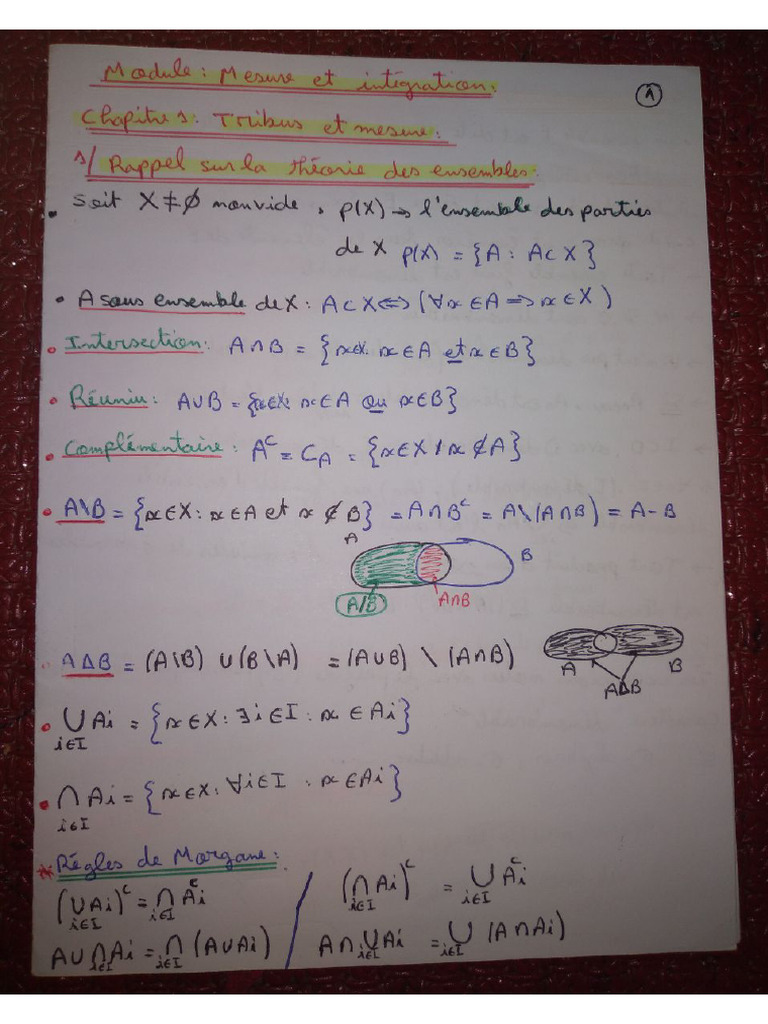 Module: Mesure et intégration.
①
Chapitre 1: Tribus et mesure.
1/ Rappel sur la théorie des ensembles.
• Soit X ≠ ∅ non vide, p(X) → l'ensemble des parties
de X p(X) = {A : A ⊂ X}
• A sous ensemble de X : A ⊂ X ⟺ (∀x ∈ A ⟹ x ∈ X)
• Intersection: A ∩ B = {x ∈ X: x ∈ A et x ∈ B}
• Réuniu: A ∪ B = {x ∈ X: x ∈ A ou x ∈ B}
• Complémentaire: Aᶜ = C_A = {x ∈ X / x ∉ A}
• A\B = {x ∈ X: x ∈ A et x ∉ B} = A ∩ Bᶜ = A \ (A ∩ B) = A - B
A
B
A/B
A∩B
• A Δ B = (A \ B) ∪ (B \ A) = (A ∪ B) \ (A ∩ B)
A
B
AΔB
• ∪_{i∈I} Ai = {x ∈ X: ∃ i ∈ I : x ∈ Ai}
• ∩_{i∈I} Ai = {x ∈ X: ∀ i ∈ I : x ∈ Ai}
* Règles de Morgane:
(∪_{i∈I} Ai)ᶜ = ∩_{i∈I} Aiᶜ / (∩_{i∈I} Ai)ᶜ = ∪_{i∈I} Aiᶜ
A ∪ ∩_{i∈I} Ai = ∩_{i∈I} (A ∪ Ai) / A ∩ ∪_{i∈I} Ai = ∪_{i∈I} (A ∩ Ai)